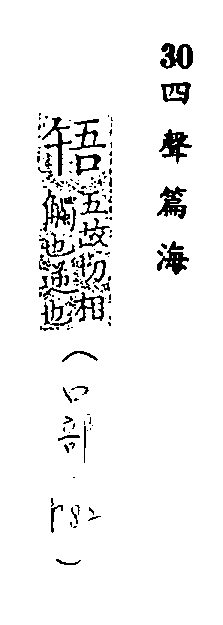 30四聲篇海
啎
五故切相
觸也逆也
(口部.p82)